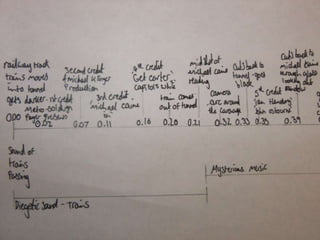 railway track
trains moves
into tunnel
gets darker - 1st credit
Metro-Goldwyn
Mayer presents
second credit
A michael klinger
Production
3rd credit -
'michael caine
in'
4th credit
'Get carter'
capitors while
train comes
out of tunnel
middle of
michael caine
reading
camera
arc around
the carriage
cuts back to
tunnel - goes
black
5th credit
'Ian Hendry'
John osbourne
cuts back to
michael caine
through glass
looking out
0.00
0.02
0.07
0.11
0.16
0.20
0.21
0.32
0.33
0.35
0.39
Sound of
trains
Passing
Mysterious music
Diegetic sound - Trains